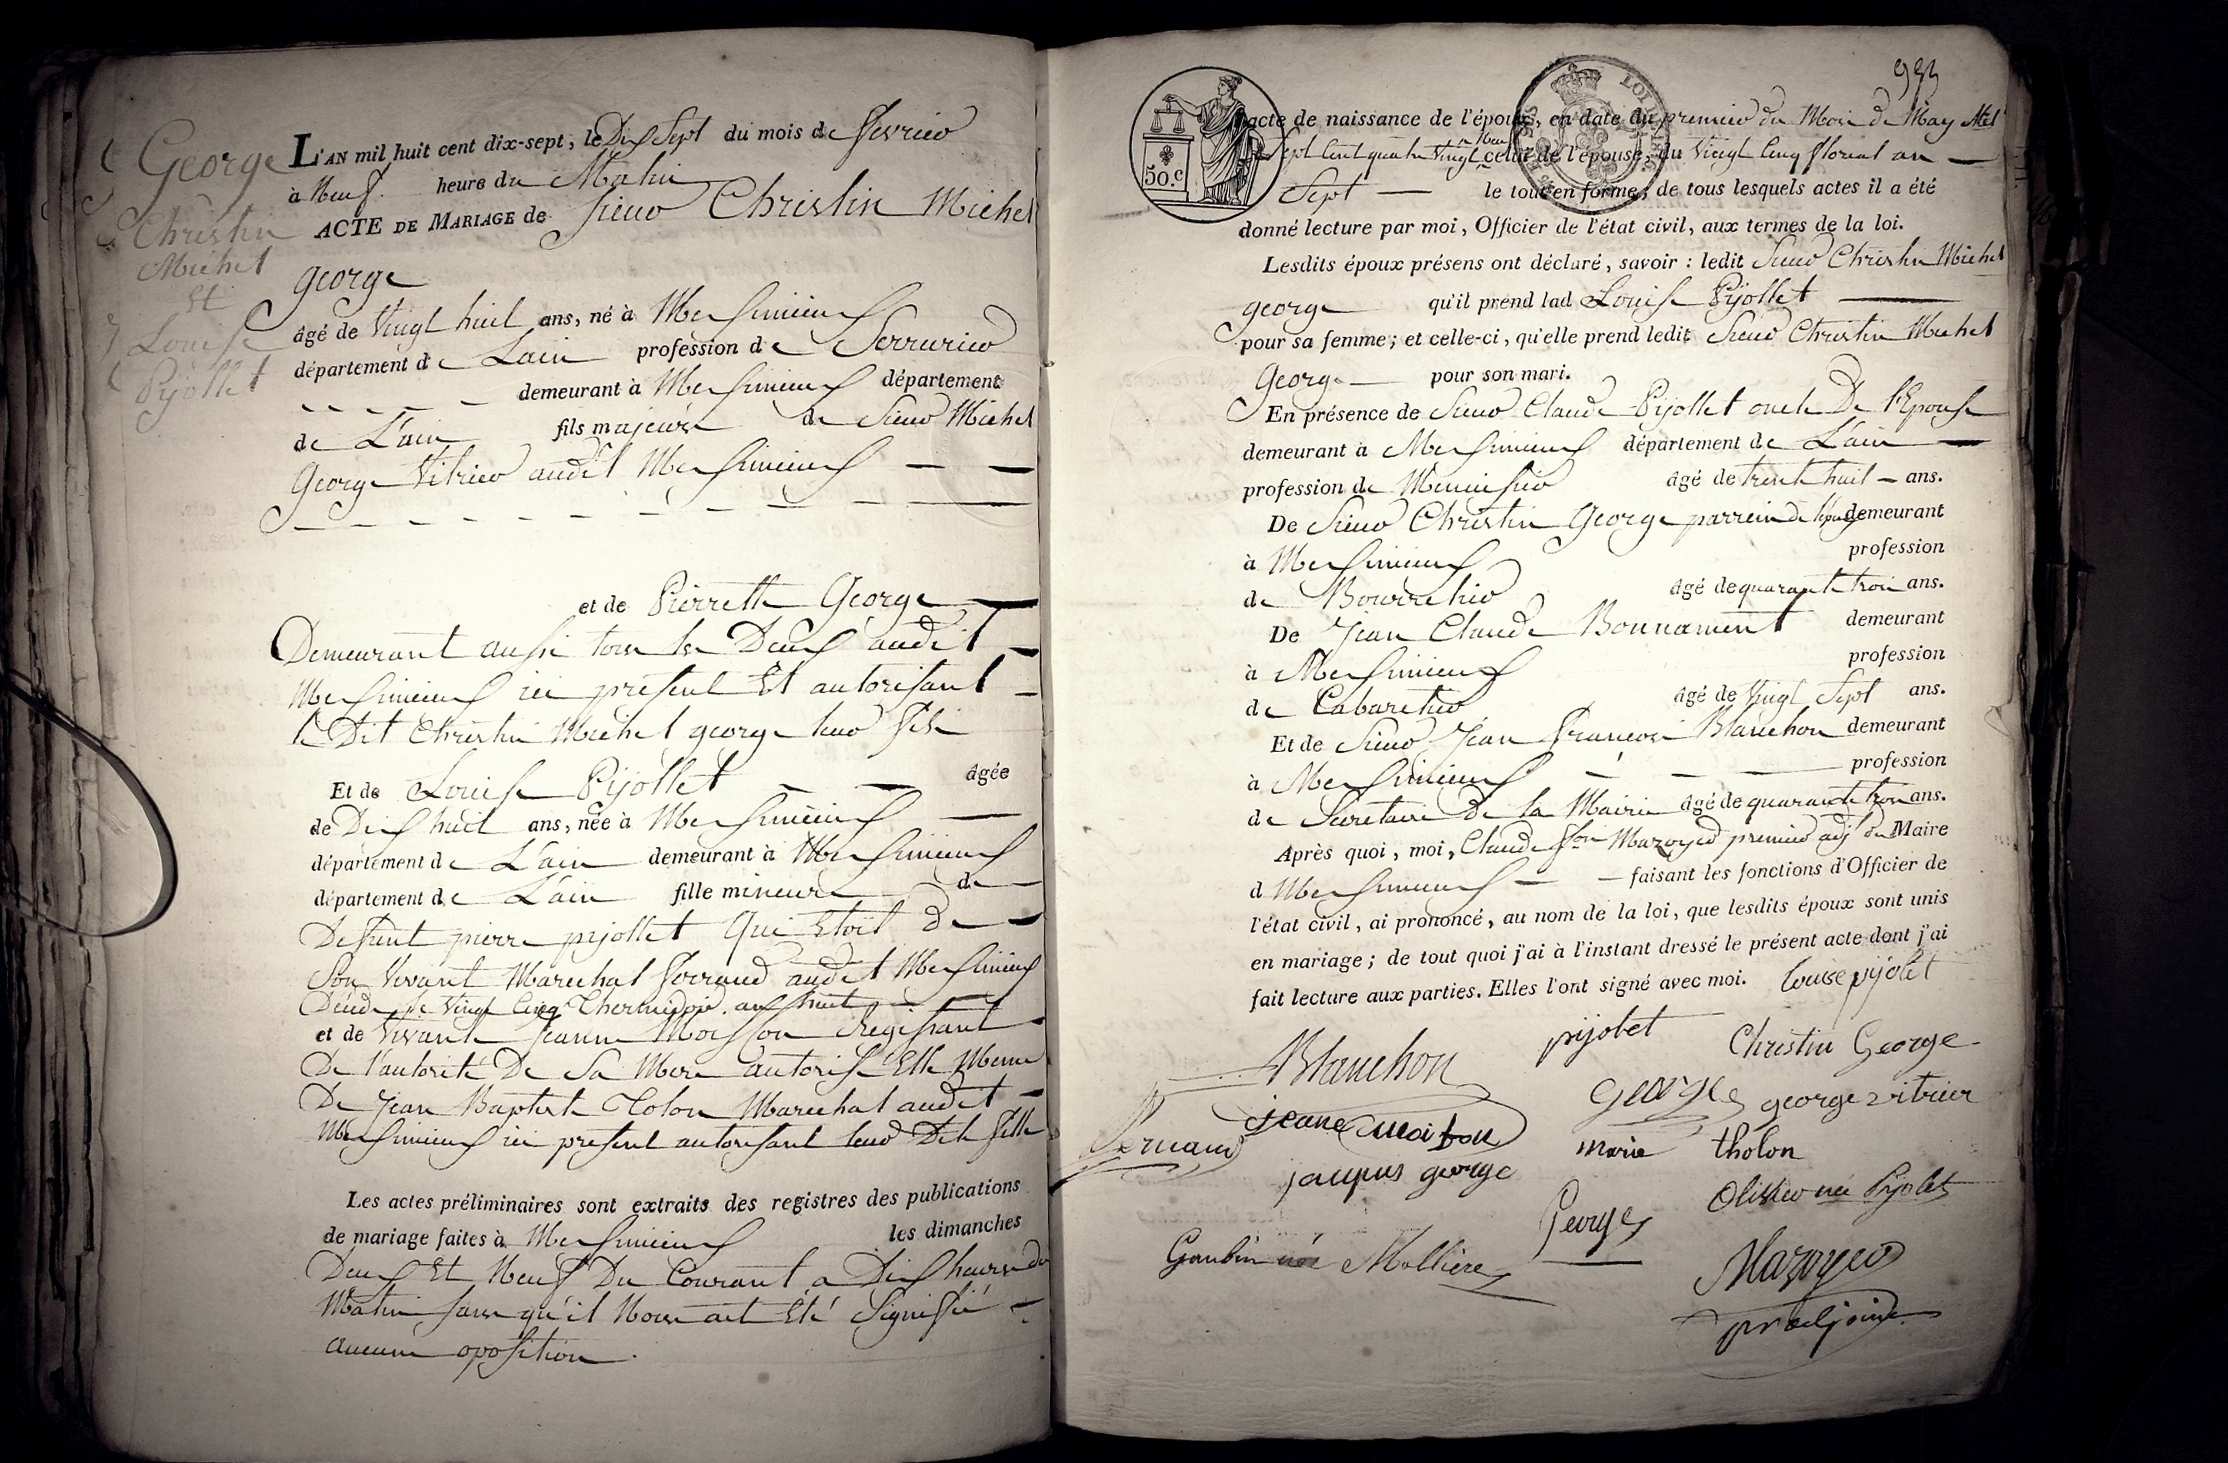 George
Christin
Michel
Et
Louise
Pijollet
L'AN mil huit cent dix-sept, le Dix Sept du mois de fevrier
à Neuf heure du Matin
ACTE DE MARIAGE de Sieur Christin Michel
George
âgé de Vingt huit ans, né à Meximieux
département de Lain profession de Serrurier
demeurant à Meximieux département
de L'ain fils majeur de Sieur Michel
George Vitrier audit Meximieux
et de Pierrette George
Demeurant aussi tous les Deux audit
Meximieux ici present Et autorisant
le Dit Christin Michel george leur fils
Et de Louise Pijollet âgée
de Dix huit ans, née à Meximieux
département de L'ain demeurant à Meximieux
département de L'ain fille mineure de
Defunt pierre pijollet Qui Etoit De
Son Vivant Marechal ferrand audit Meximieux
Décédé le Vingt Cinq Thermidor an huit
et de Vivante Jeanne Moisson Regissant
De l'autorité De Sa Mere autorisé Elle Meme
De Jean Baptiste Tolon Marechal audit
Meximieux ici present autorisant leur Dite fille
Les actes préliminaires sont extraits des registres des publications
de mariage faites à Meximieux les dimanches
Deux Et Neuf Du Courant à Dix heures du
Matin sans qu'il Nous ait Eté Signifié
aucune oposition.
50.c
LOI
acte de naissance de l'époux, en date du premier du Mois de May Mil
Sept Cent quatre Vingt neuf celui de l'épouse, du Vingt Cinq floreal an
Sept le tout en forme; de tous lesquels actes il a été
donné lecture par moi, Officier de l'état civil, aux termes de la loi.
Lesdits époux présens ont déclaré, savoir : ledit Sieur Christin Michel
george qu'il prend lad Louise Pijollet
pour sa femme; et celle-ci, qu'elle prend ledit Sieur Christin Michel
George pour son mari.
En présence de Sieur Claude Pijollet oncle De l'Epouse
demeurant à Meximieux département de L'ain
profession de Menuisier âgé de trente huit ans.
De Sieur Christin George parrein de l'epoux demeurant
à Meximieux profession
de Bourrelier âgé de quarante trois ans.
De Jean Claude Bonnament demeurant
à Meximieux profession
de Cabaretier âgé de Vingt Sept ans.
Et de Sieur Jean francois Blanchon demeurant
à Meximieux profession
de Secretaire De la Mairie âgé de quarante trois ans.
Après quoi, moi, Claude fois Mazoyer premier adj du Maire
d Meximieux faisant les fonctions d'Officier de
l'état civil, ai prononcé, au nom de la loi, que lesdits époux sont unis
en mariage; de tout quoi j'ai à l'instant dressé le présent acte dont j'ai
fait lecture aux parties. Elles l'ont signé avec moi. Louise pijolet
Blanchon pijolet Christin George
George george vitrier
jeane moison marie tholon
jacques george
George Olivier née Pijolet
Gonbin née Mollière Mazoyer
pr adjoint